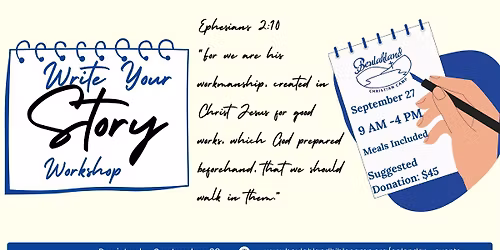 Write Your
Story
Workshop
Ephesians 2:10
"for we are his
workmanship, created in
Christ Jesus for good
works, which God prepared
beforehand, that we should
walk in them."
Beulahland
CHRISTIAN CAMP
September 27
9 AM -4 PM
Meals Included
Suggested
Donation: $45